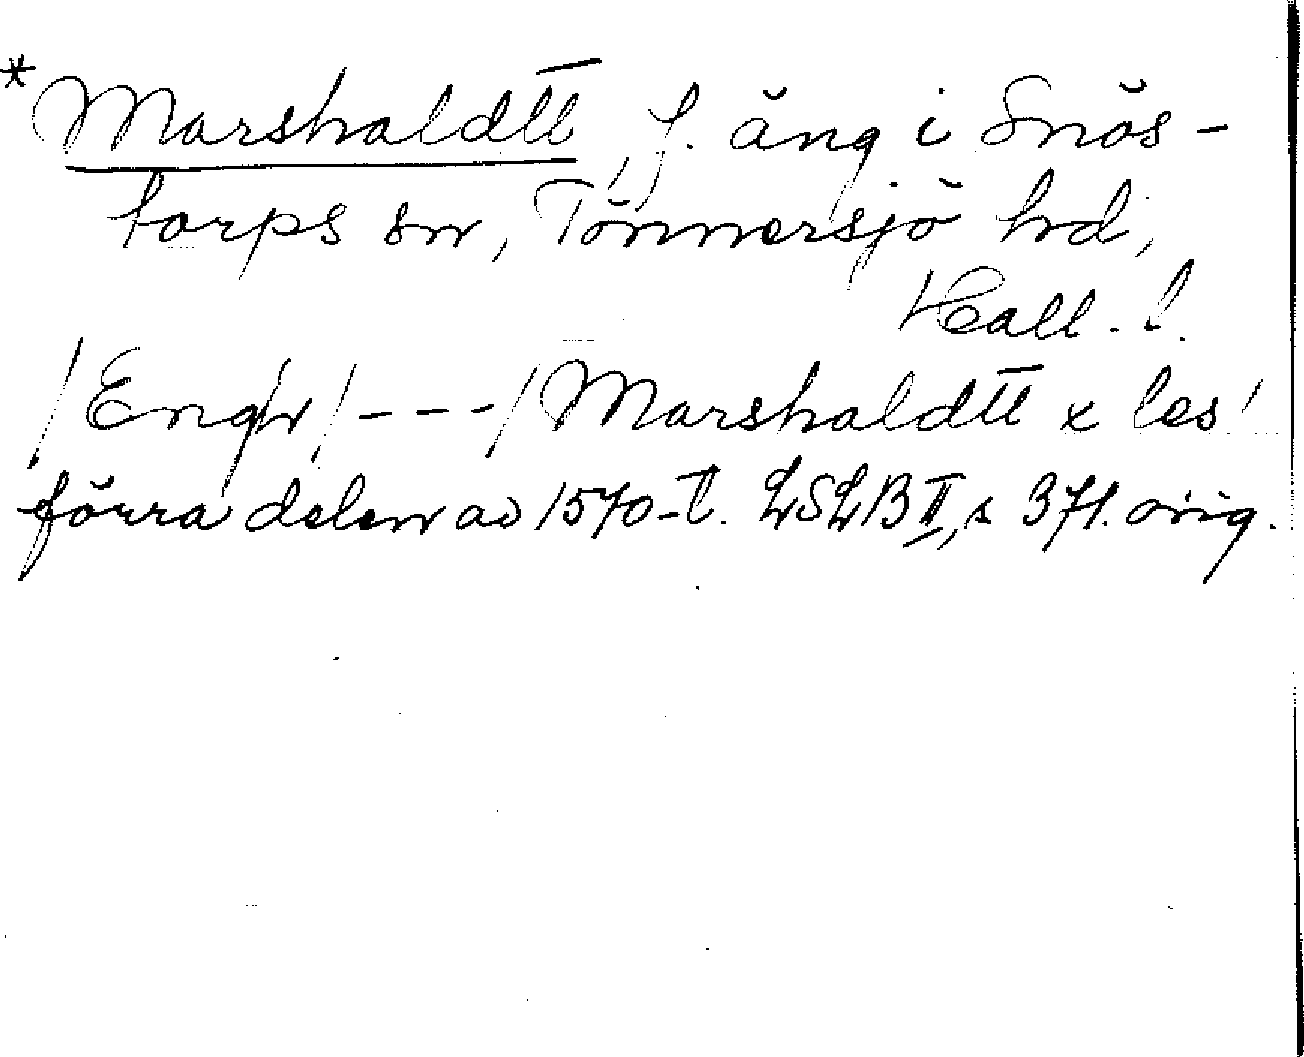 *Marshaldtt, f. äng i Snös-
torps sn, Tönnersjö hd,
Hall. l.
/Engh/ - - - / Marshaldtt x les/
förra delen av 1570-t. LSLB II, s 371. orig.